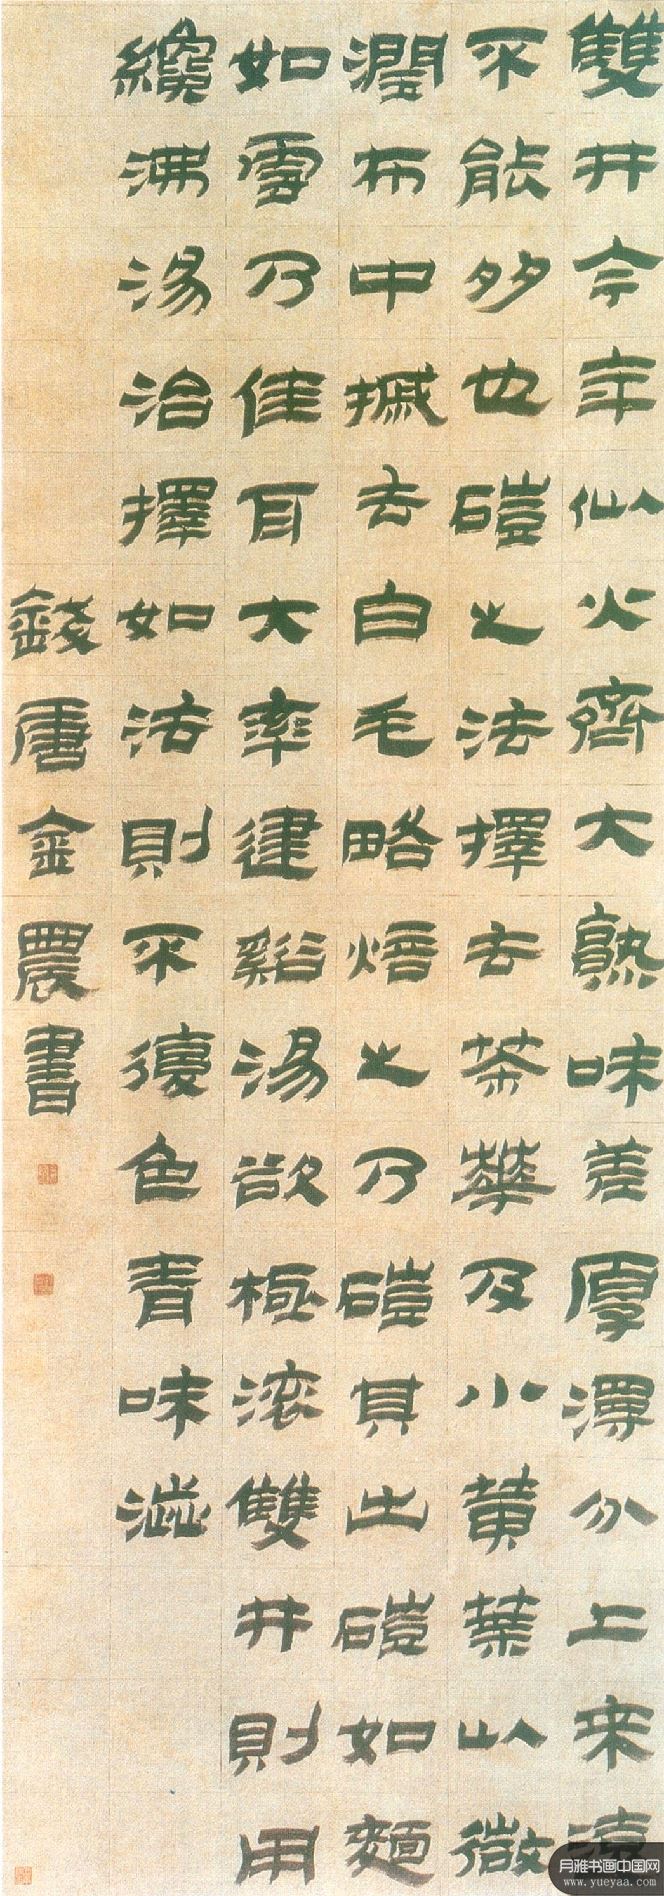 雙井今年似火齊大熟味差厚澤分上来遠
不能多也磑之法擇去茶華及小黄葉以微
潤布中摵去白毛略焙之乃磑其出磑如麵
如雪乃佳耳大率建谿湯欲極滚雙井則用
纔沸湯治擇如法則不復色青味澁
錢唐金農書
月雅书画中国网
www.yueyaa.com